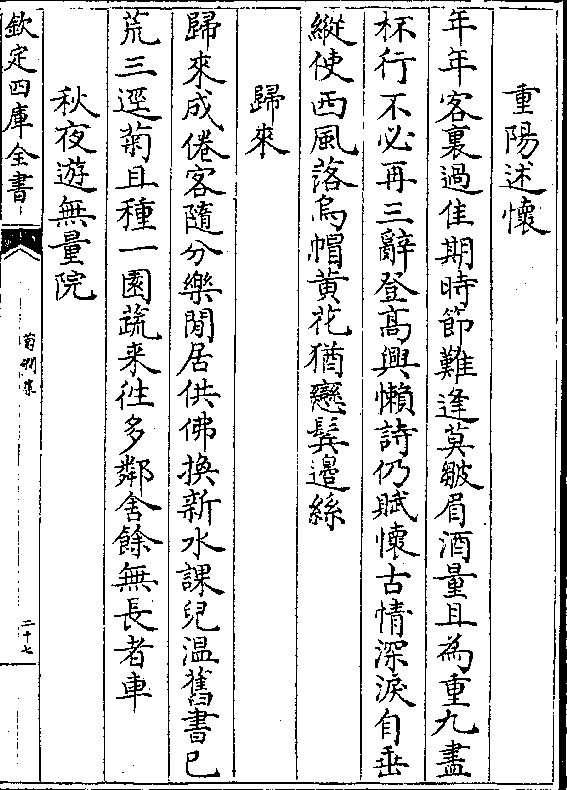 重陽述懷
年年客裏過佳期時節難逢莫皺眉酒量且為重九盡
杯行不必再三辭登高興懶詩仍賦懷古情深淚自垂
縱使西風落烏帽黃花猶戀鬂邊絲
歸來
歸來成倦客隨分樂閒居供佛換新水課兒温舊書已
荒三逕菊且種一園蔬来往多鄰舍餘無長者車
秋夜遊無量院
欽定四庫全書
菊磵集
二十七